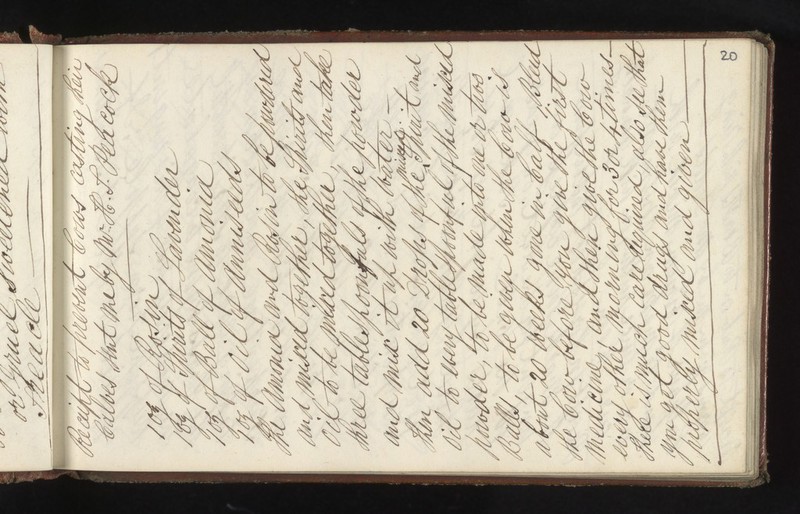 or Gruel
Treacle
20
Receipt to prevent Cows casting their
Calves sent me by Mr H. S. Peacock
1oz of Rosin
1oz of Spirits of Lavender
1oz of Ball of Amonia
1oz of Oil of Anniseeds
The Amonia and Rosin to be powdered
and mixed together, the Spirits and
Oil to be mixed together, then take
three tablespoonfuls of the powder
and mix it up with water —
then add 20 Drops of the mixed Spirit and
oil to every tablespoonful of the mixed
powder, to be made into one or two
Balls to be given when the Cow is
about 20 weeks gone in Calf Bleed
the Cow before you give the first
medicine and then give the Cow
every other morning for 3 or 4 times —
there is much care required, also see that
you get good drugs and have them
properly mixed and given